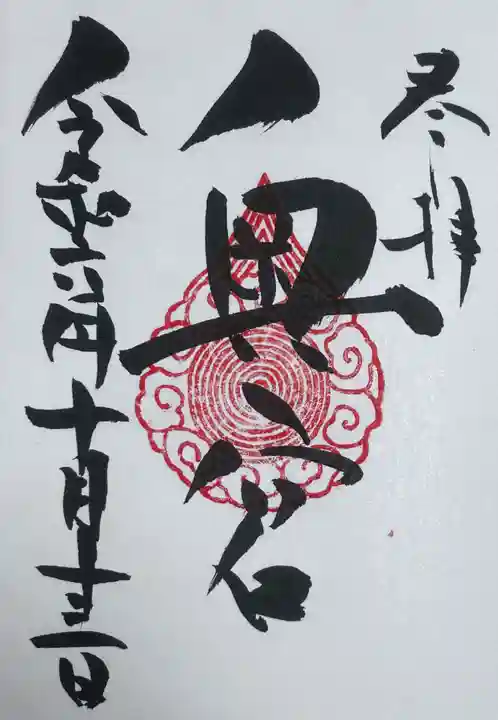 奉拝
奥宮
令和六年十月十三日